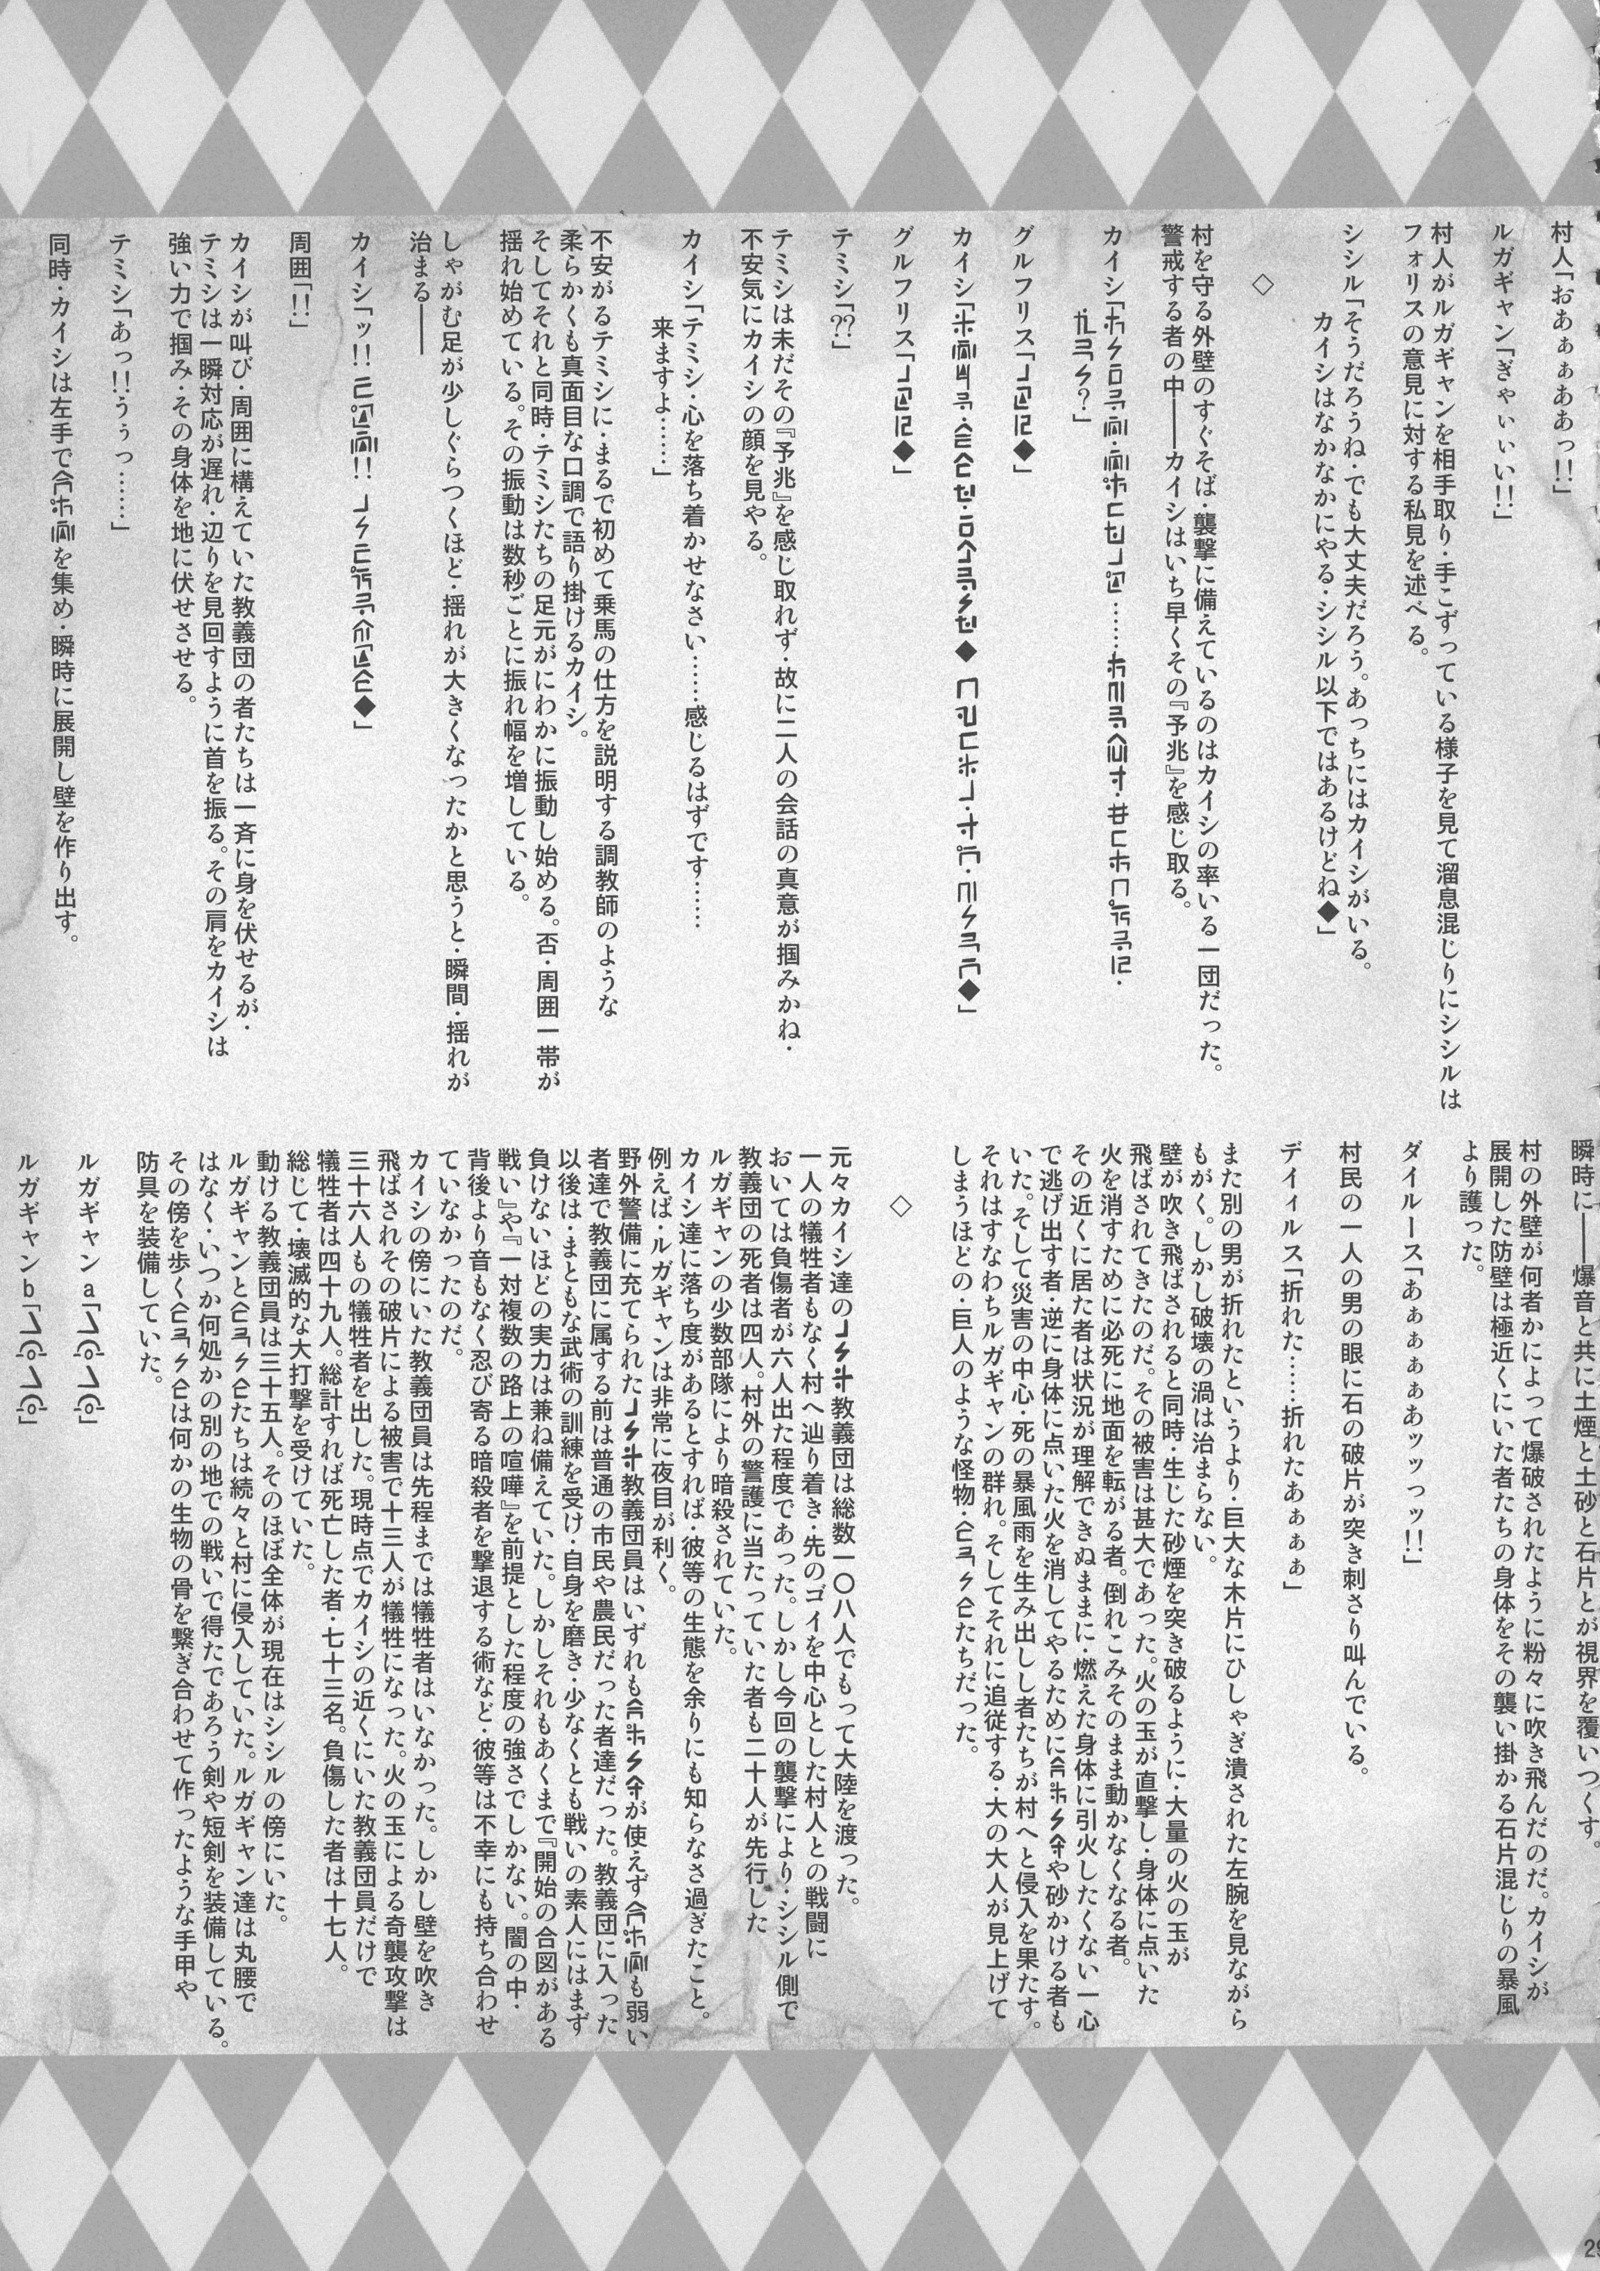 村人「おあぁぁああっ!!」
ルガギャン「ぎゃぃぃい!!」
村人がルガギャンを相手取り・手こずっている様子を見て溜息混じりにシシルは
フォリスの意見に対する私見を述べる。
シシル「そうだろうね・でも大丈夫だろう。あっちにはカイシがいる。
カイシはなかなかにやる・シシル以下ではあるけどね◆」
◇
村を守る外壁のすぐそば・襲撃に備えているのはカイシの率いる一団だった。
警戒する者の中――カイシはいち早くその『予兆』を感じ取る。
カイシ「
?」
グルフリス「◆」
カイシ「◆ ◆」
グルフリス「◆」
テミシ「??」
テミシは未だその『予兆』を感じ取れず・故に二人の会話の真意が掴みかね・
不安気にカイシの顔を見やる。
カイシ「テミシ・心を落ち着かせなさい……感じるはずです……
来ますよ……」
不安がるテミシに・まるで初めて乗馬の仕方を説明する調教師のような
柔らかくも真面目な口調で語り掛けるカイシ。
そしてそれと同時・テミシたちの足元がにわかに振動し始める。否・周囲一帯が
揺れ始めている。その振動は数秒ごとに振れ幅を増している。
しゃがむ足が少しぐらつくほど・揺れが大きくなったかと思うと・瞬間・揺れが
治まる――
カイシ「ッ!! !! ◆」
周囲「!!」
カイシが叫び・周囲に構えていた教義団の者たちは一斉に身を伏せるが・
テミシは一瞬対応が遅れ・辺りを見回すように首を振る。その肩をカイシは
強い力で掴み・その身体を地に伏せさせる。
テミシ「あっ!!うぅっ……」
同時・カイシは左手でを集め・瞬時に展開し壁を作り出す。
瞬時に――爆音と共に土煙と土砂と石片とが視界を覆いつくす。
村の外壁が何者かによって爆破されたように粉々に吹き飛んだのだ。カイシが
展開した防壁は極近くにいた者たちの身体をその襲い掛かる石片混じりの暴風
より護った。
ダイルース「あぁぁぁぁあッッっッ!!」
村民の一人の男の眼に石の破片が突き刺さり叫んでいる。
デイィルス「折れた……折れたあぁぁぁ」
また別の男が折れたというより・巨大な木片にひしゃぎ潰された左腕を見ながら
もがく。しかし破壊の渦は治まらない。
壁が吹き飛ばされると同時・生じた砂煙を突き破るように・大量の火の玉が
飛ばされてきたのだ。その被害は甚大であった。火の玉が直撃し・身体に点いた
火を消すために必死に地面を転がる者。倒れこみそのまま動かなくなる者。
その近くに居た者は状況が理解できぬままに・燃えた身体に引火したくない一心
で逃げ出す者・逆に身体に点いた火を消してやるためにや砂かける者も
いた。そして災害の中心・死の暴風雨を生み出しし者たちが村へと侵入を果たす。
それはすなわちルガギャンの群れ。そしてそれに追従する・大の大人が見上げて
しまうほどの・巨人のような怪物・たちだった。
◇
元々カイシ達の教義団は総数一〇八人でもって大陸を渡った。
一人の犠牲者もなく村へ辿り着き・先のゴイを中心とした村人との戦闘に
おいては負傷者が六人出た程度であった。しかし今回の襲撃により・シシル側で
教義団の死者は四人。村外の警護に当たっていた者も二十人が先行した
ルガギャンの少数部隊により暗殺されていた。
カイシ達に落ち度があるとすれば・彼等の生態を余りにも知らなさ過ぎたこと。
例えば・ルガギャンは非常に夜目が利く。
野外警備に充てられた教義団員はいずれもが使えずも弱い
者達で教義団に属する前は普通の市民や農民だった者達だった。教義団に入った
以後は・まともな武術の訓練を受け・自身を磨き・少なくとも戦いの素人にはまず
負けないほどの実力は兼ね備えていた。しかしそれもあくまで『開始の合図がある
戦い』や『一対複数の路上の喧嘩』を前提とした程度の強さでしかない。闇の中・
背後より音もなく忍び寄る暗殺者を撃退する術など・彼等は不幸にも持ち合わせ
ていなかったのだ。
カイシの傍にいた教義団員は先程までは犠牲者はいなかった。しかし壁を吹き
飛ばされその破片による被害で十三人が犠牲になった。火の玉による奇襲攻撃は
三十六人もの犠牲者を出した。現時点でカイシの近くにいた教義団員だけで
犠牲者は四十九人。総計すれば死亡した者・七十三名。負傷した者は十七人。
総じて・壊滅的な大打撃を受けていた。
動ける教義団員は三十五人。そのほぼ全体が現在はシシルの傍にいた。
ルガギャンとたちは続々と村に侵入していた。ルガギャン達は丸腰で
はなく・いつか何処かの別の地での戦いで得たであろう剣や短剣を装備している。
その傍を歩くは何かの生物の骨を繋ぎ合わせて作ったような手甲や
防具を装備していた。
ルガギャンa「」
ルガギャンb「」
29